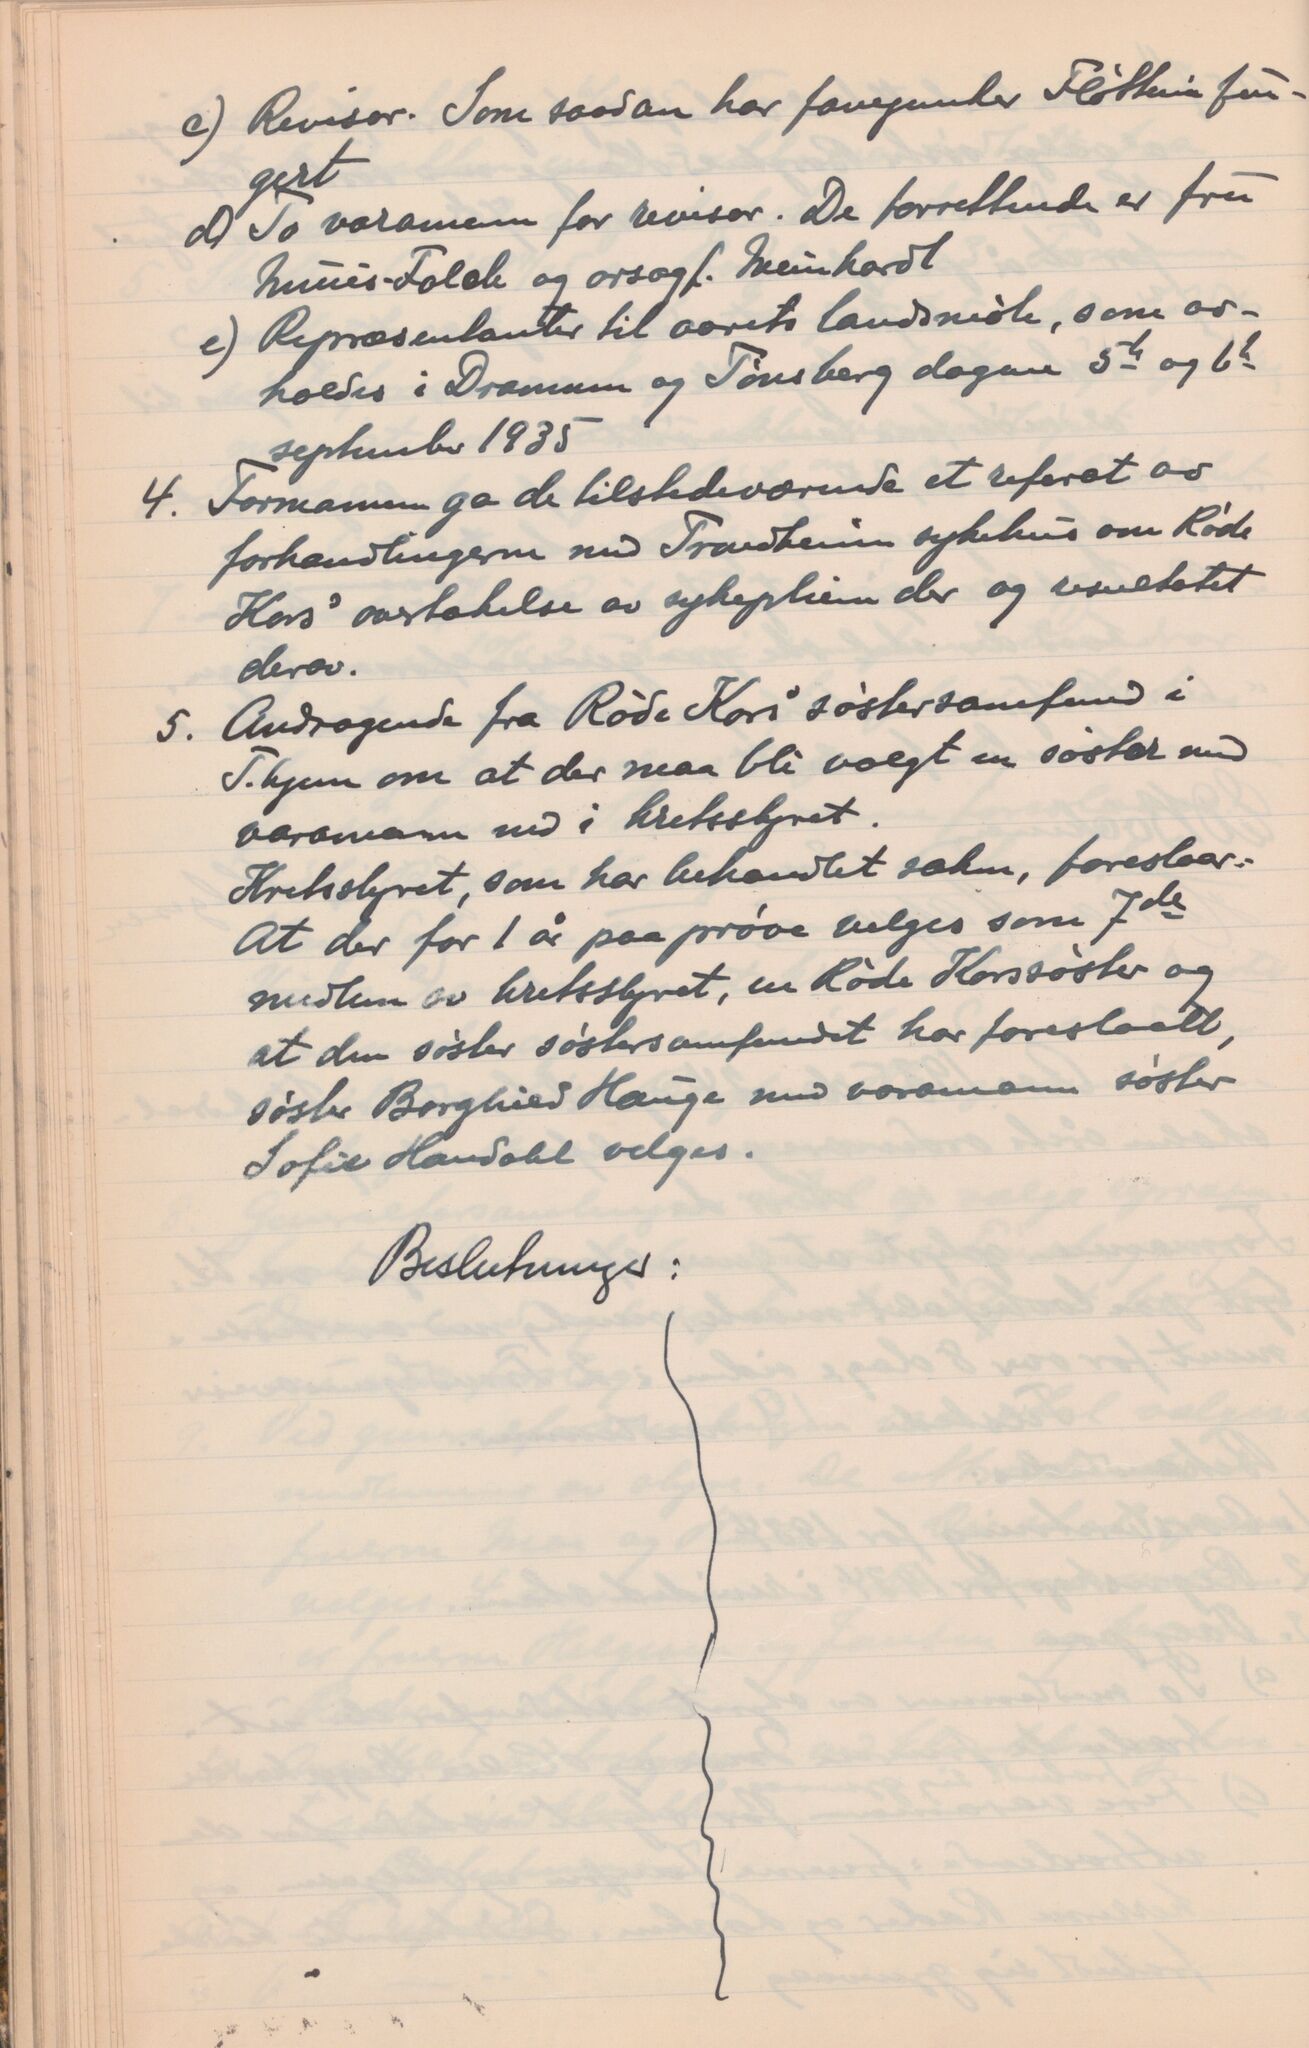 c) Revisor. Som saadan har fungert
d) To varamenn for revisor. De forrettende er fru
Munis-Falck og orsagf. Meinhardt
e) Repræsentanter til aarets landsmöte, som av-
holdes i Drammen og Tönsberg dagene 5te og 6te
september 1935
4. Formannen ga de tilstedeværende et referat av
forhandlingerne med Trondheim sykehus om Röde
Kors' overtakelse av sykepleien der og resultatet
derav.
5. Andragende fra Röde Kors' söstersamfund i
T.hjem om at der maa bli valgt en söster med
varamann ind i kretsstyret.
Kretsstyret, som har behandlet saken, foreslaar:-
At der for 1 år paa pröve velges som 7de
medlem av kretsstyret, en Röde Korssöster og
at den söster söstersamfundet har foreslaatt,
söster Borghild Hauge med varamann söster
Sofie Haudahl velges.
Beslutninger: